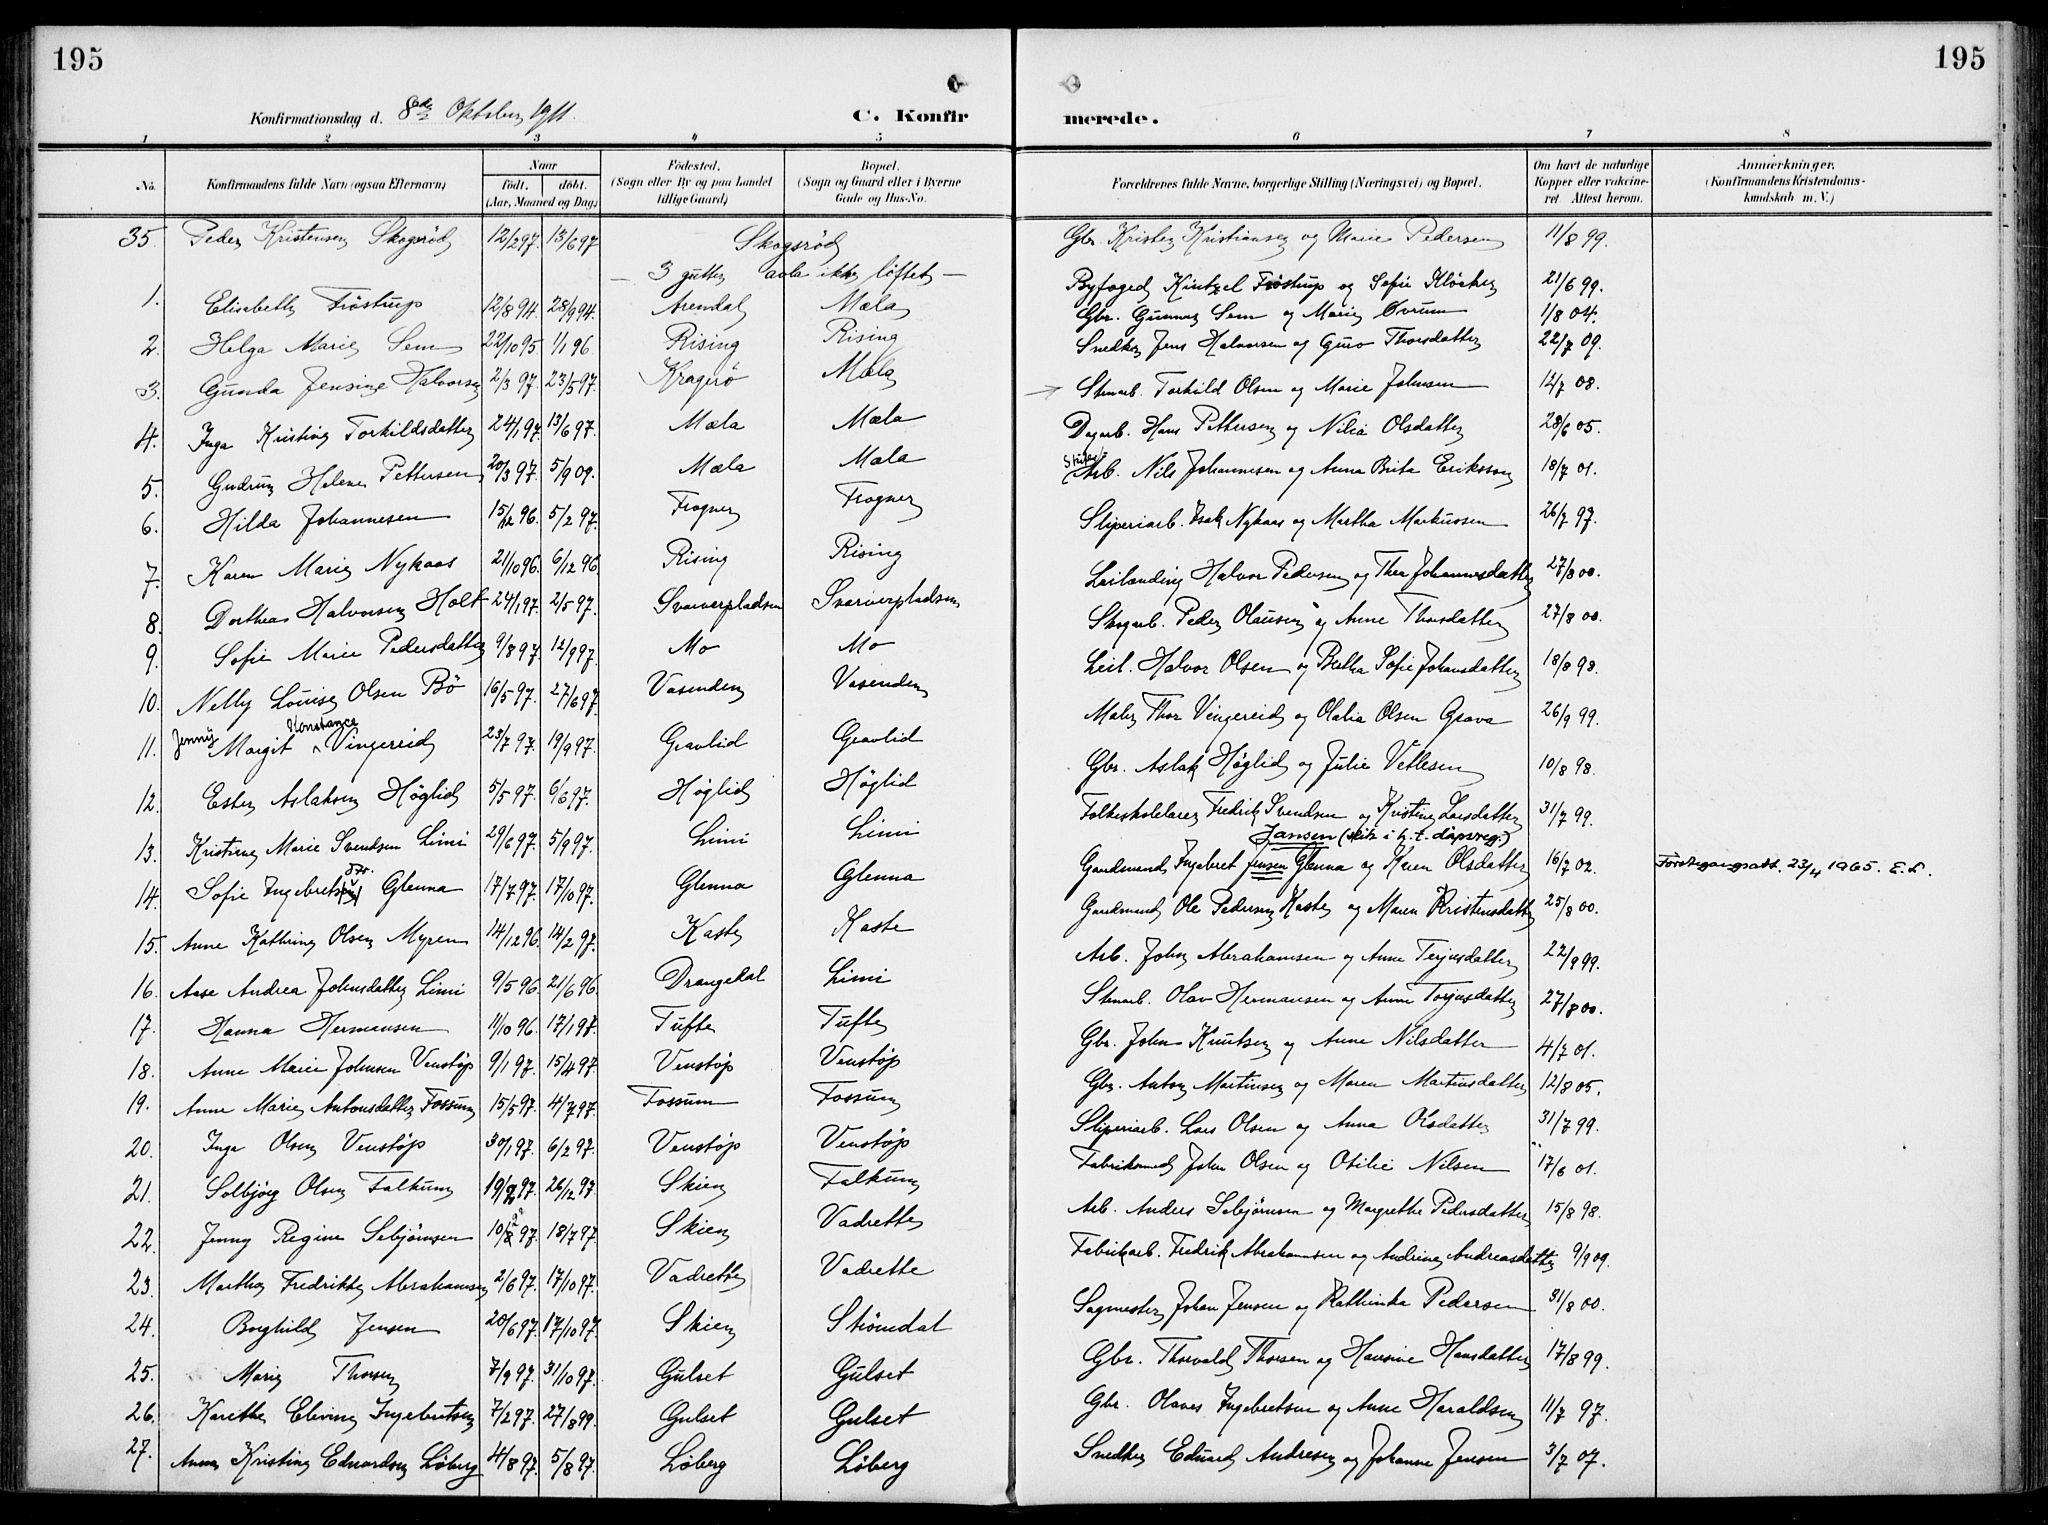 195
195
Konfirmationsdag d. 8de Oktober 1911.
C. Konfirmerede.
1 2 3 4 5 6 7 8
No. Konfirmandens fulde Navn (ogsaa Efternavn) Naar födt. döbt. (Aar, Maaned og Dag.) Födested. (Sogn eller By og paa Landet tillige Gaard) Bopæl. (Sogn og Gaard eller i Byerne Gade og Hus-No. Forældrenes fulde Navne, borgerlige Stilling (Næringsvei) og Bopæl. Om havt de naturlige Kopper eller vakcineret Attest herom. Anmærkninger. (Konfirmandens Kristendomskundskab m. V.)
35. Peder Kristensen Skogsröd 12/2 97. 13/6 97 Skogsröd Gbr. Kristen Kristiansen og Maren Pedersen 11/8 99.
— 3 gutter avla ikke löftet —
1. Elisabeth Fröstrup 12/8 94. 28/9 94. Arendal Mæla Byfoged Kintzel Fröstrup og Sofie Klöcker 21/6 99.
2. Helga Marie Sem 22/10 95 1/1 96 Rising Rising Gbr. Gunnar Sem og Marie Övrum 1/8 04.
3. Gunda Jensine Halvorsen 2/3 97. 23/5 97. Kragerö Mæla Snedker Jens Halvorsen og Guro Thorsdatter 22/7 09.
4. Inga Kristine Torkildsdatter 24/1 97. 13/6 97. Mæla Mæla Stenarb. Torkild Olsen og Marie Johnsen 12/7 08.
5. Gudrun Helene Pettersen 20/3 97. 5/9 09. Mæla Mæla Dagarb. Hans Pettersen og Nilia Olsdatter 28/6 05.
6. Hilda Johannesen 15/12 96. 5/2 97. Frogner Frogner Arb. Nils Johannesen og Anna Brita Eriksson 18/7 01.
7. Karen Marie Nykaas 21/10 96. 6/12 96. Rising Rising Sliperiarb. Isak Nykaas og Martha Markussen 26/7 97.
8. Dorthea Halvorsen Holt 24/1 97. 2/5 97. Svarverpladsen Svarverpladsen Leilænding Halvor Pedersen og Thea Johannesdatter 27/8 00.
9. Sofie Marie Pedersdatter 9/8 97. 12/9 97. Mo Mo Skogarb. Peder Olausen og Anne Thorsdatter 27/8 00.
10. Nelly Louise Olsen Bö 16/5 97. 27/6 97. Vasenden Vasenden Leil. Halvor Olsen og Bertha Sofie Johansdatter 18/8 98.
11. Jenny Margit Konstance Vingereid 23/7 97. 19/9 97. Gravlid Gravlid Maler Thor Vingereid og Olalia Olsen Grava 26/9 99.
12. Ester Aslaksen Höglid 5/5 97. 6/6 97. Höglid Höglid Gbr. Aslak Höglid og Julie Vetlesen 10/8 98.
13. Kristine Marie Svendsen Limi 29/6 97. 5/9 97. Limi Limi Folkeskolelærer Fredrik Svendsen og Kristine Larsdatter 31/7 99.
Jansen
14. Sofie Ingebretsen Glenna 17/7 97. 17/10 97. Glenna Glenna Gaardmand Ingebret Jensen Glenna og Karen Olsdatter 16/7 02. Förstegangsatt. 23/4 1965. E.L.
15. Anne Kathrine Olsen Myren 14/12 96. 14/2 97. Kaste Kaste Gaardmand Ole Pedersen Kaste og Maren Kristensdatter 25/8 00.
16. Aase Andrea Johnsdatter Limi 9/5 96. 21/6 96. Drangedal Limi Arb. John Abrahamsen og Anne Terjesdatter 22/9 99.
17. Hanna Hermansen 11/10 96. 17/1 97. Tufte Tufte Stenarb. Olav Hermansen og Anne Torjusdatter 27/8 00.
18. Anne Marie Johnsen Venstöp 9/1 97. 15/4 97. Venstöp Venstöp Gbr. John Knutsen og Anne Nilsdatter 4/7 01.
19. Anne Marie Antonsdatter Fossum 15/5 97. 4/7 97. Fossum Fossum Gbr. Anton Martinsen og Maren Martinsdatter 12/8 05.
20. Inga Olsen Venstöp 30/1 97. 6/2 97. Venstöp Venstöp Sliperiarb. Lars Olsen og Anna Olsdatter 31/7 99.
21. Solbjörg Olsen Falkum 19/9 97. 26/12 97. Skien Falkum Fabrikmed John Olsen og Otilie Nilsen 17/6 01.
22. Jenny Regine Sebjörnsen 10/2 97. 18/7 97. Skien Vadrette Arb. Anders Sebjörnsen og Margrethe Pedersdatter 15/8 98.
23. Martha Fredrikke Abrahamsen 2/6 97. 17/10 97. Vadrette Vadrette Fabrikarb. Fredrik Abrahamsen og Andrine Andreasdatter 9/9 09.
24. Borghild Jensen 20/6 97. 17/10 97. Skien Strömdal Sagmester Johan Jensen og Kathinka Pedersen 31/8 00.
25. Marie Thorsen 7/9 97. 31/10 97. Gulset Gulset Gbr. Thorvald Thorsen og Hansine Hansdatter 17/8 99.
26. Karethe Elevine Ingebretsen 7/2 97. 27/8 99. Gulset Gulset Gbr. Olaves Ingebretsen og Anne Haraldsen 11/7 97.
27. Anna Kristine Edvardsen Löberg 4/8 97. 5/8 97. Löberg Löberg Snedker Edvard Andresen og Johanne Jensen 3/7 07.